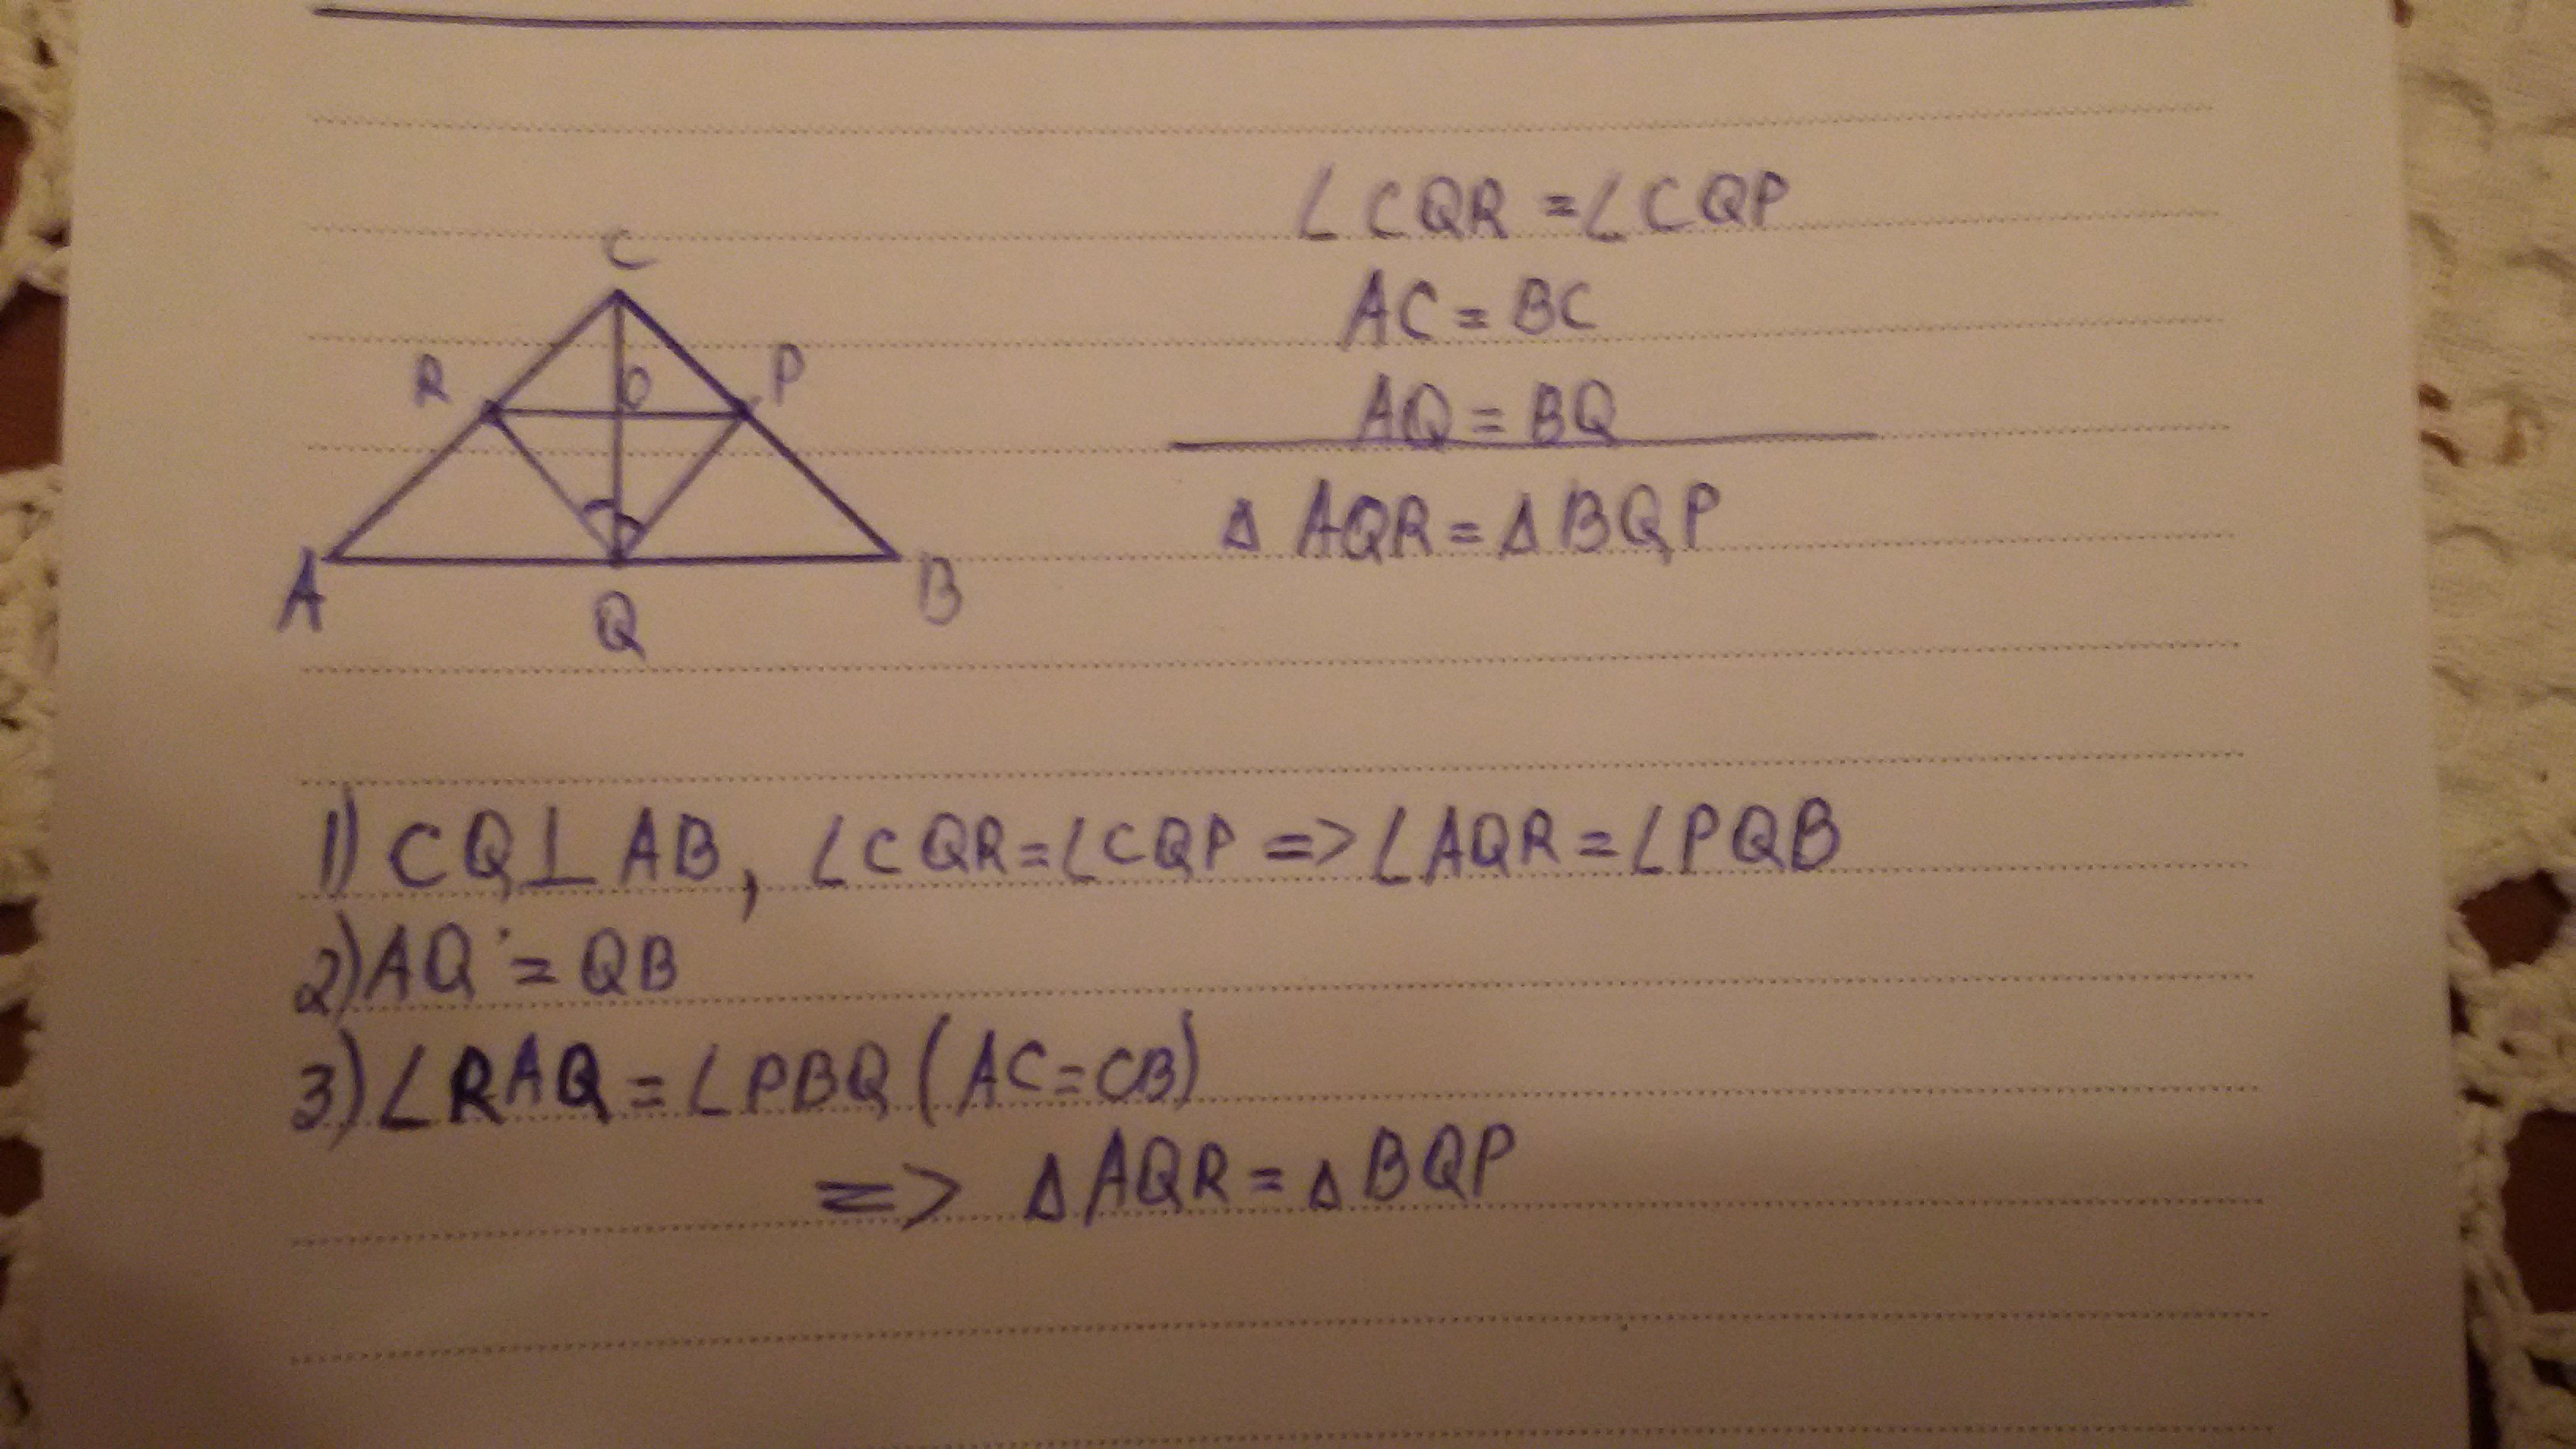 C
R
O
P
A
Q
B
∠CQR = ∠CQP
AC = BC
AQ = BQ
Δ AQR = Δ BQP
1) CQ⊥AB, ∠CQR=∠CQP => ∠AQR = ∠PQB
2) AQ = QB
3) ∠RAQ = ∠PBQ (AC=CB)
=> Δ AQR = Δ BQP